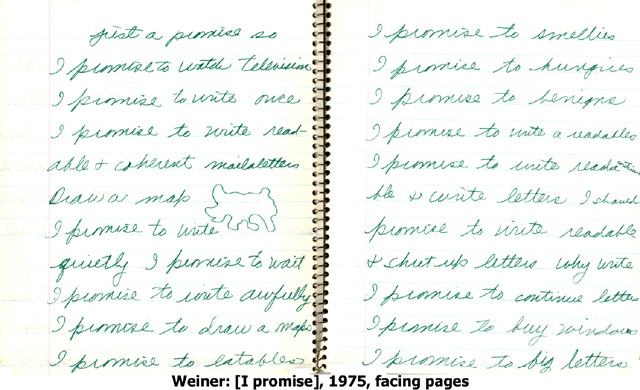 just a promise so
I promise to watch television
I promise to write once
I promise to write read-
able & coherent mailaletters
Draw a map
I promise to write
quietly I promise to wait
I promise to write awfully
I promise to draw a maps
I promise to eatables
I promise to smellies
I promise to hungries
I promise to benigns
I promise to write a readables
I promise to write reada
ble & write letters I should
promise to write readable
& shut up letters why write
I promise to continue letters
I promise to buy windows
I promise to big letters
Weiner: [I promise], 1975, facing pages